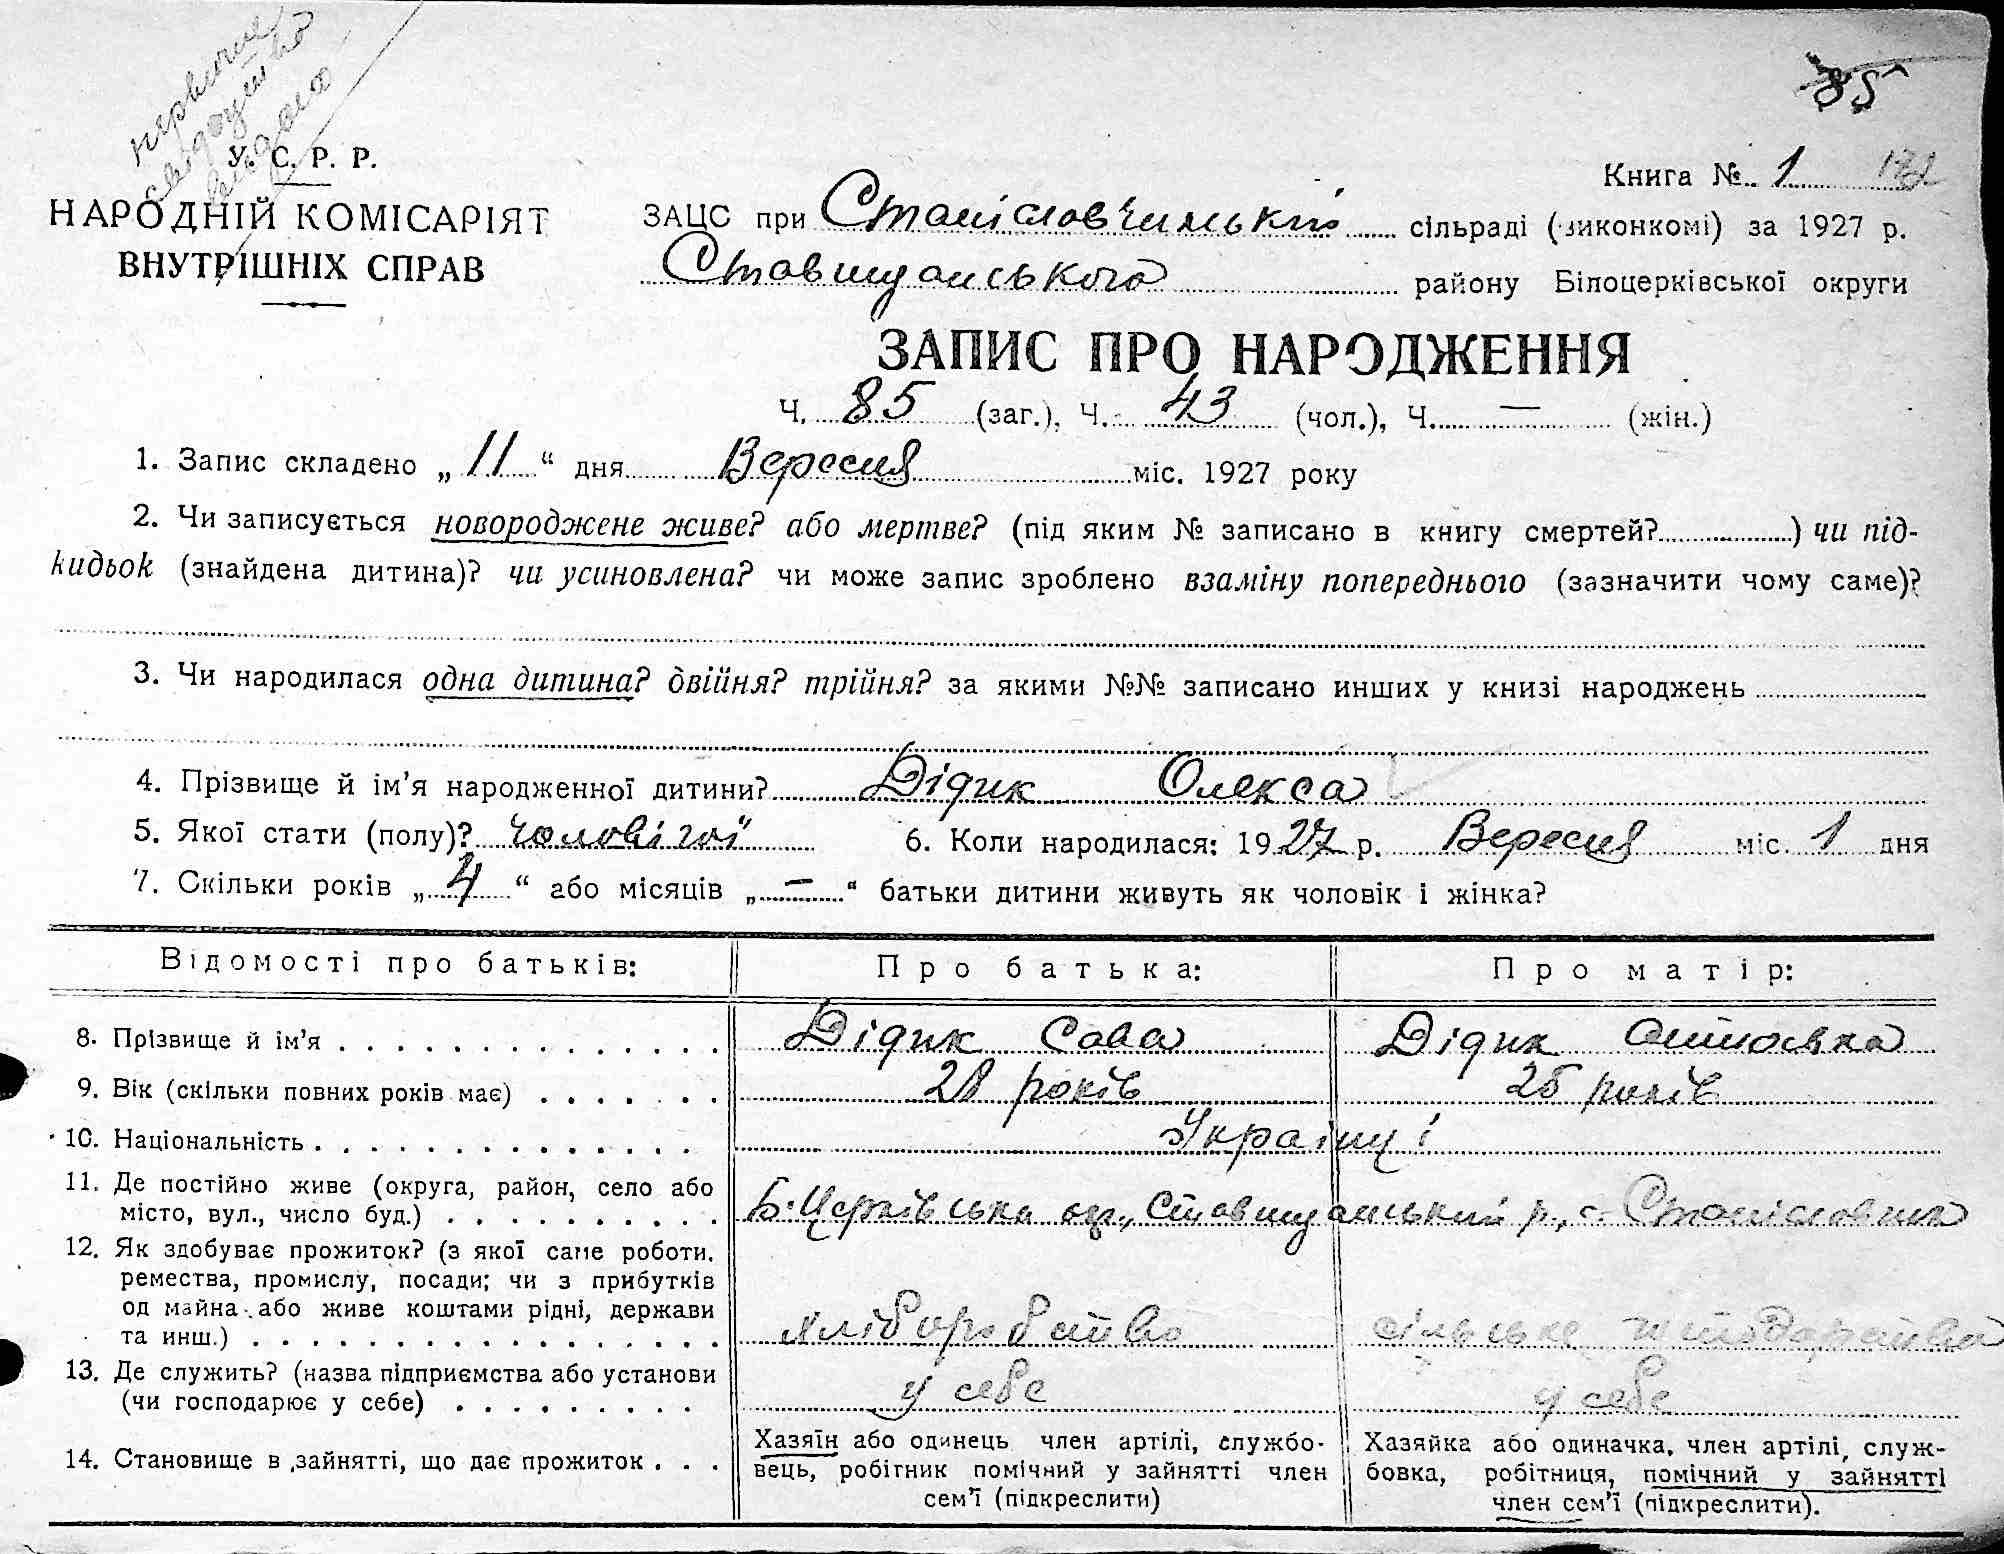 первичне
свідоцтво
видано
85
У. С. Р. Р.
НАРОДНІЙ КОМІСАРІЯТ
ВНУТРІШНІХ СПРАВ
Книга №. 1 172
ЗАЦС при Станіславчинській сільраді (виконкомі) за 1927 р.
Ставищанського району Білоцерківської округи
ЗАПИС ПРО НАРОДЖЕННЯ
Ч. 85 (заг.), Ч. 43 (чол.), Ч. — (жін.)
1. Запис складено „ 11 “ дня Вересня міс. 1927 року
2. Чи записується новороджене живе? або мертве? (під яким № записано в книгу смертей? ) чи під-
кидьок (знайдена дитина)? чи усиновлена? чи може запис зроблено взаміну попереднього (зазначити чому саме)?
3. Чи народилася одна дитина? двійня? трійня? за якими №№ записано инших у книзі народжень
4. Прізвище й ім’я народженної дитини? Дідик Олекса
5. Якої стати (полу)? чоловічої 6. Коли народилася: 1927 р. Вересня міс. 1 дня
7. Скільки років „ 4 “ або місяців „ — “ батьки дитини живуть як чоловік і жінка?
Відомості про батьків: Про батька: Про матір:
8. Прізвище й ім’я Дідик Сава Дідик
9. Вік (скільки повних років має) років 25 років
10. Національність Українці
11. Де постійно живе (округа, район, село або
місто, вул., число буд.) Б-Церківська окр., Ставищанський р., с. Станіславчик
12. Як здобуває прожиток? (з якої саме роботи,
ремества, промислу, посади; чи з прибутків
од майна або живе коштами рідні, держави
та инш.) хліборобство сільське господарство
13. Де служить? (назва підприємства або установи
(чи господарює у себе) у себе у себе
14. Становище в зайнятті, що дає прожиток
Хазяїн або одинець член артілі, службо-
вець, робітник помічний у зайнятті член
сем’ї (підкреслити)
Хазяйка або одиначка, член артілі, служ-
бовка, робітниця, помічний у зайнятті
член сем’ї (підкреслити).